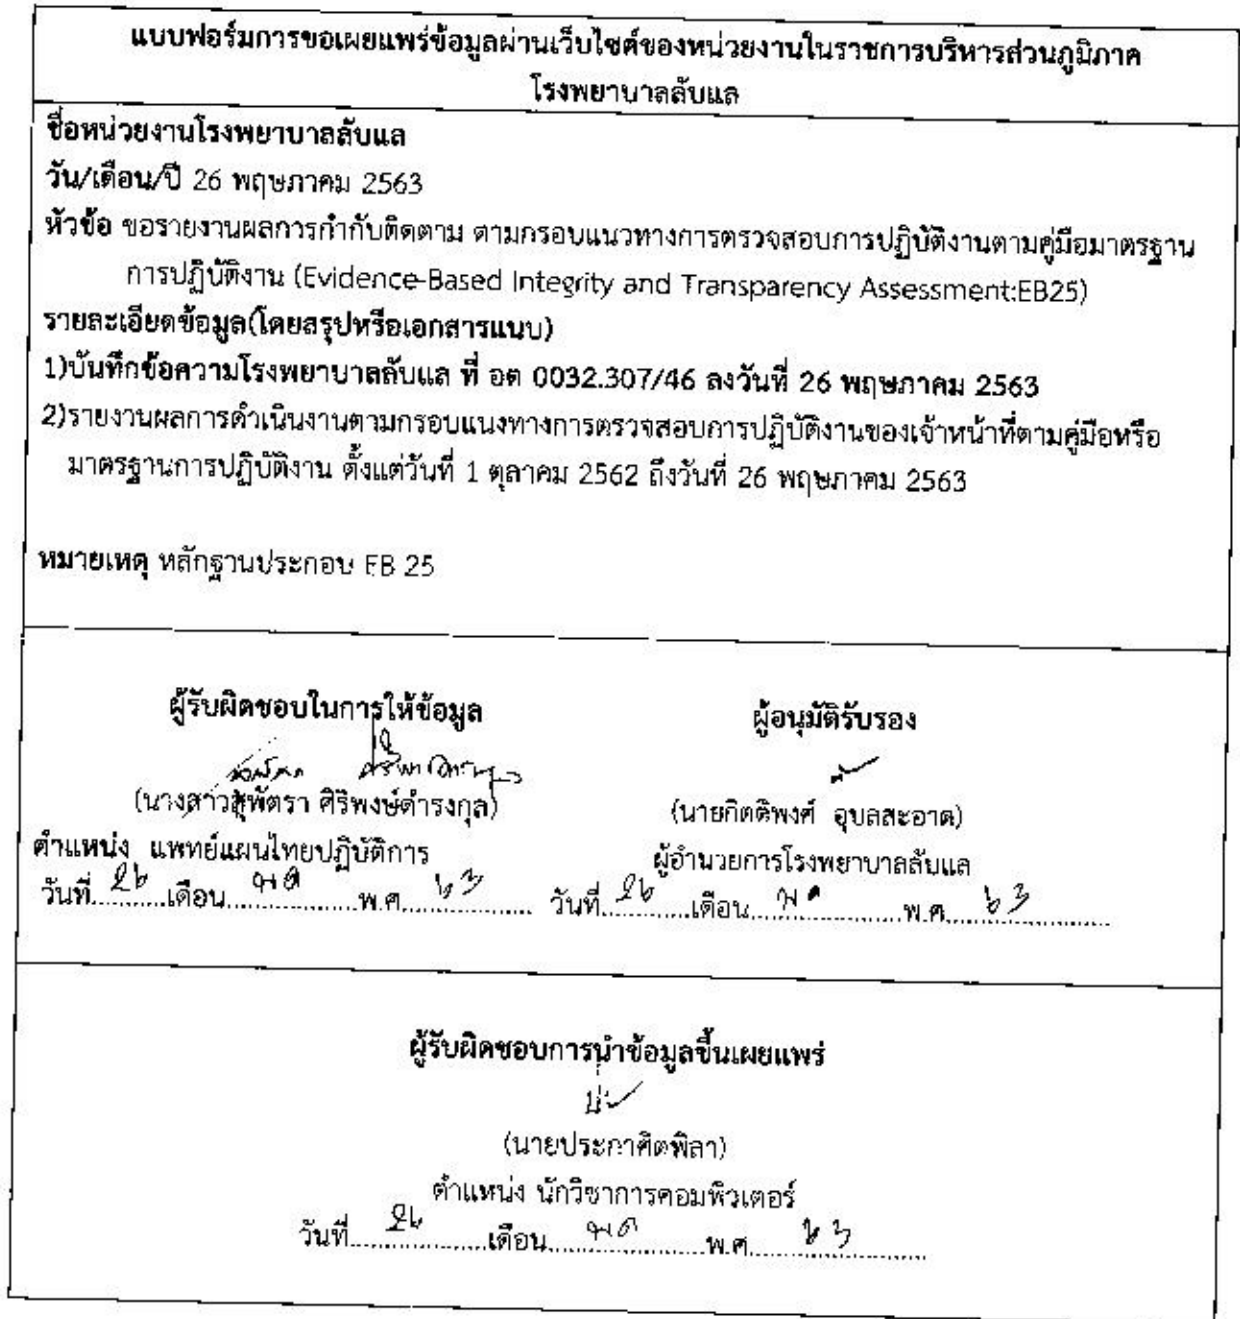 แบบฟอร์มการขอเผยแพร่ข้อมูลผ่านเว็บไซต์ของหน่วยงานในราชการบริหารส่วนภูมิภาค
โรงพยาบาลลับแล
ชื่อหน่วยงานโรงพยาบาลลับแล
วัน/เดือน/ปี 26 พฤษภาคม 2563
หัวข้อ ขอรายงานผลการกำกับติดตาม ตามกรอบแนวทางการตรวจสอบการปฏิบัติงานตามคู่มือมาตรฐาน
การปฏิบัติงาน (Evidence-Based Integrity and Transparency Assessment:EB25)
รายละเอียดข้อมูล(โดยสรุปหรือเอกสารแนบ)
1)บันทึกข้อความโรงพยาบาลลับแล ที่ อต 0032.307/46 ลงวันที่ 26 พฤษภาคม 2563
2)รายงานผลการดำเนินงานตามกรอบแนงทางการตรวจสอบการปฏิบัติงานของเจ้าหน้าที่ตามคู่มือหรือ
มาตรฐานการปฏิบัติงาน ตั้งแต่วันที่ 1 ตุลาคม 2562 ถึงวันที่ 26 พฤษภาคม 2563
หมายเหตุ หลักฐานประกอบ EB 25
ผู้รับผิดชอบในการให้ข้อมูล ผู้อนุมัติรับรอง
(นางสาวสุพัตรา ศิริพงษ์ดำรงกุล) (นายกิตติพงศ์ อุบลสะอาด)
ตำแหน่ง แพทย์แผนไทยปฏิบัติการ ผู้อำนวยการโรงพยาบาลลับแล
วันที่ 26 เดือน พค พ.ศ. 63 วันที่ 26 เดือน พค พ.ศ. 63
ผู้รับผิดชอบการนำข้อมูลขึ้นเผยแพร่
(นายประกาศิตพิลา)
ตำแหน่ง นักวิชาการคอมพิวเตอร์
วันที่ 26 เดือน พค พ.ศ. 63